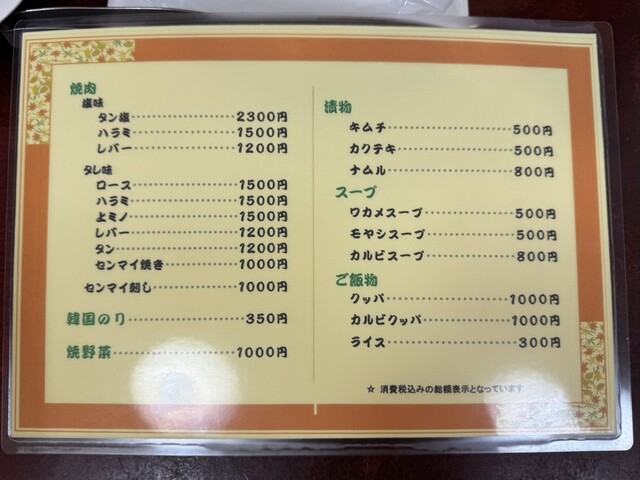 焼肉
塩味
タン塩 2300円
ハラミ 1500円
レバー 1200円
タレ味
ロース 1500円
ハラミ 1500円
上ミノ 1500円
レバー 1200円
タン 1200円
センマイ焼き 1000円
センマイ刺し 1000円
韓国のり 350円
焼野菜 1000円
漬物
キムチ 500円
カクテキ 500円
ナムル 800円
スープ
ワカメスープ 500円
モヤシスープ 500円
カルビスープ 800円
ご飯物
クッパ 1000円
カルビクッパ 1000円
ライス 300円
☆ 消費税込みの総額表示となっています